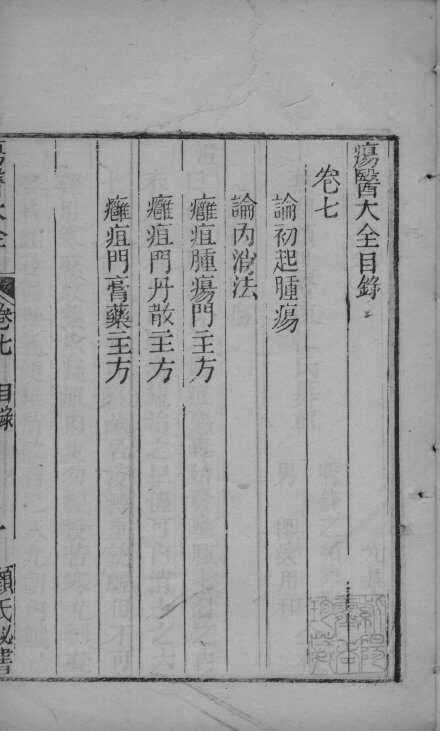 瘍醫大全目錄
卷七
論初起腫瘍
論內消法
癰疽腫瘍門主方
癰疽門丹散主方
癰疽門膏藥主方
瘍醫大全
卷七 目錄
一
顧氏秘書